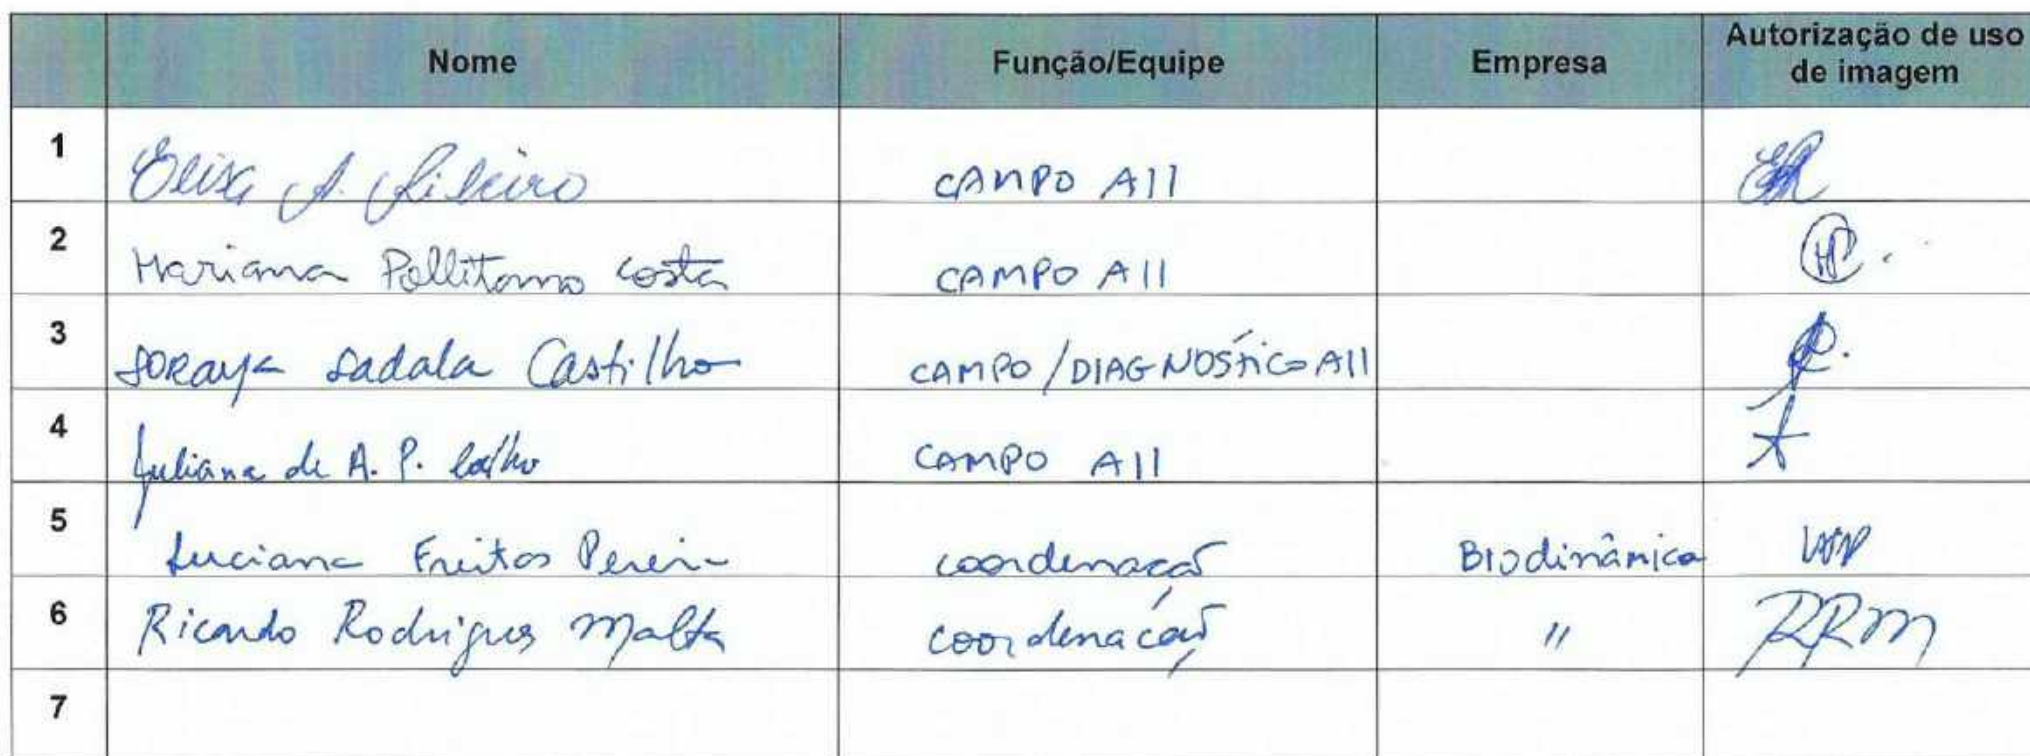 Nome Função/Equipe Empresa Autorização de uso de imagem
1 Elisa A. Ribeiro CAMPO AII
2 Mariana Pollitano Costa CAMPO AII
3 SORAYA Sadala Castilho CAMPO/DIAGNÓSTICO AII
4 Juliana de A. P. CAMPO AII
5 Luciana Freitas Pereira coordenação Biodinâmica
6 Ricardo Rodrigues Malta coordenação " RRM
7